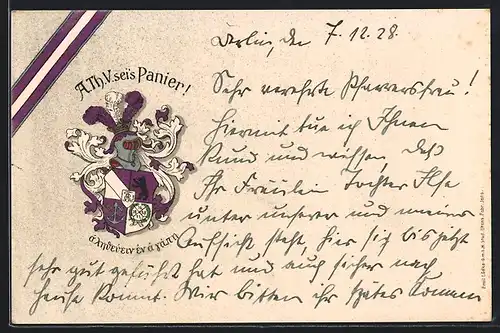 A.Th.V. sei's Panier!
ἀληθεύειν ἐν ἀγάπῃ
Berlin, den 7.12.28.
Sehr verehrte Pfarrersfrau!
Hiermit tue ich Ihnen
kund und wissen, daß
Ihr Fräulein Tochter Ilse
unter unserer und meiner
Aufsicht steht, hier sich bis jetzt
sehr gut geführt hat und auch sicher nach
Hause kommt. Wir bitten ihr spätes Kommen